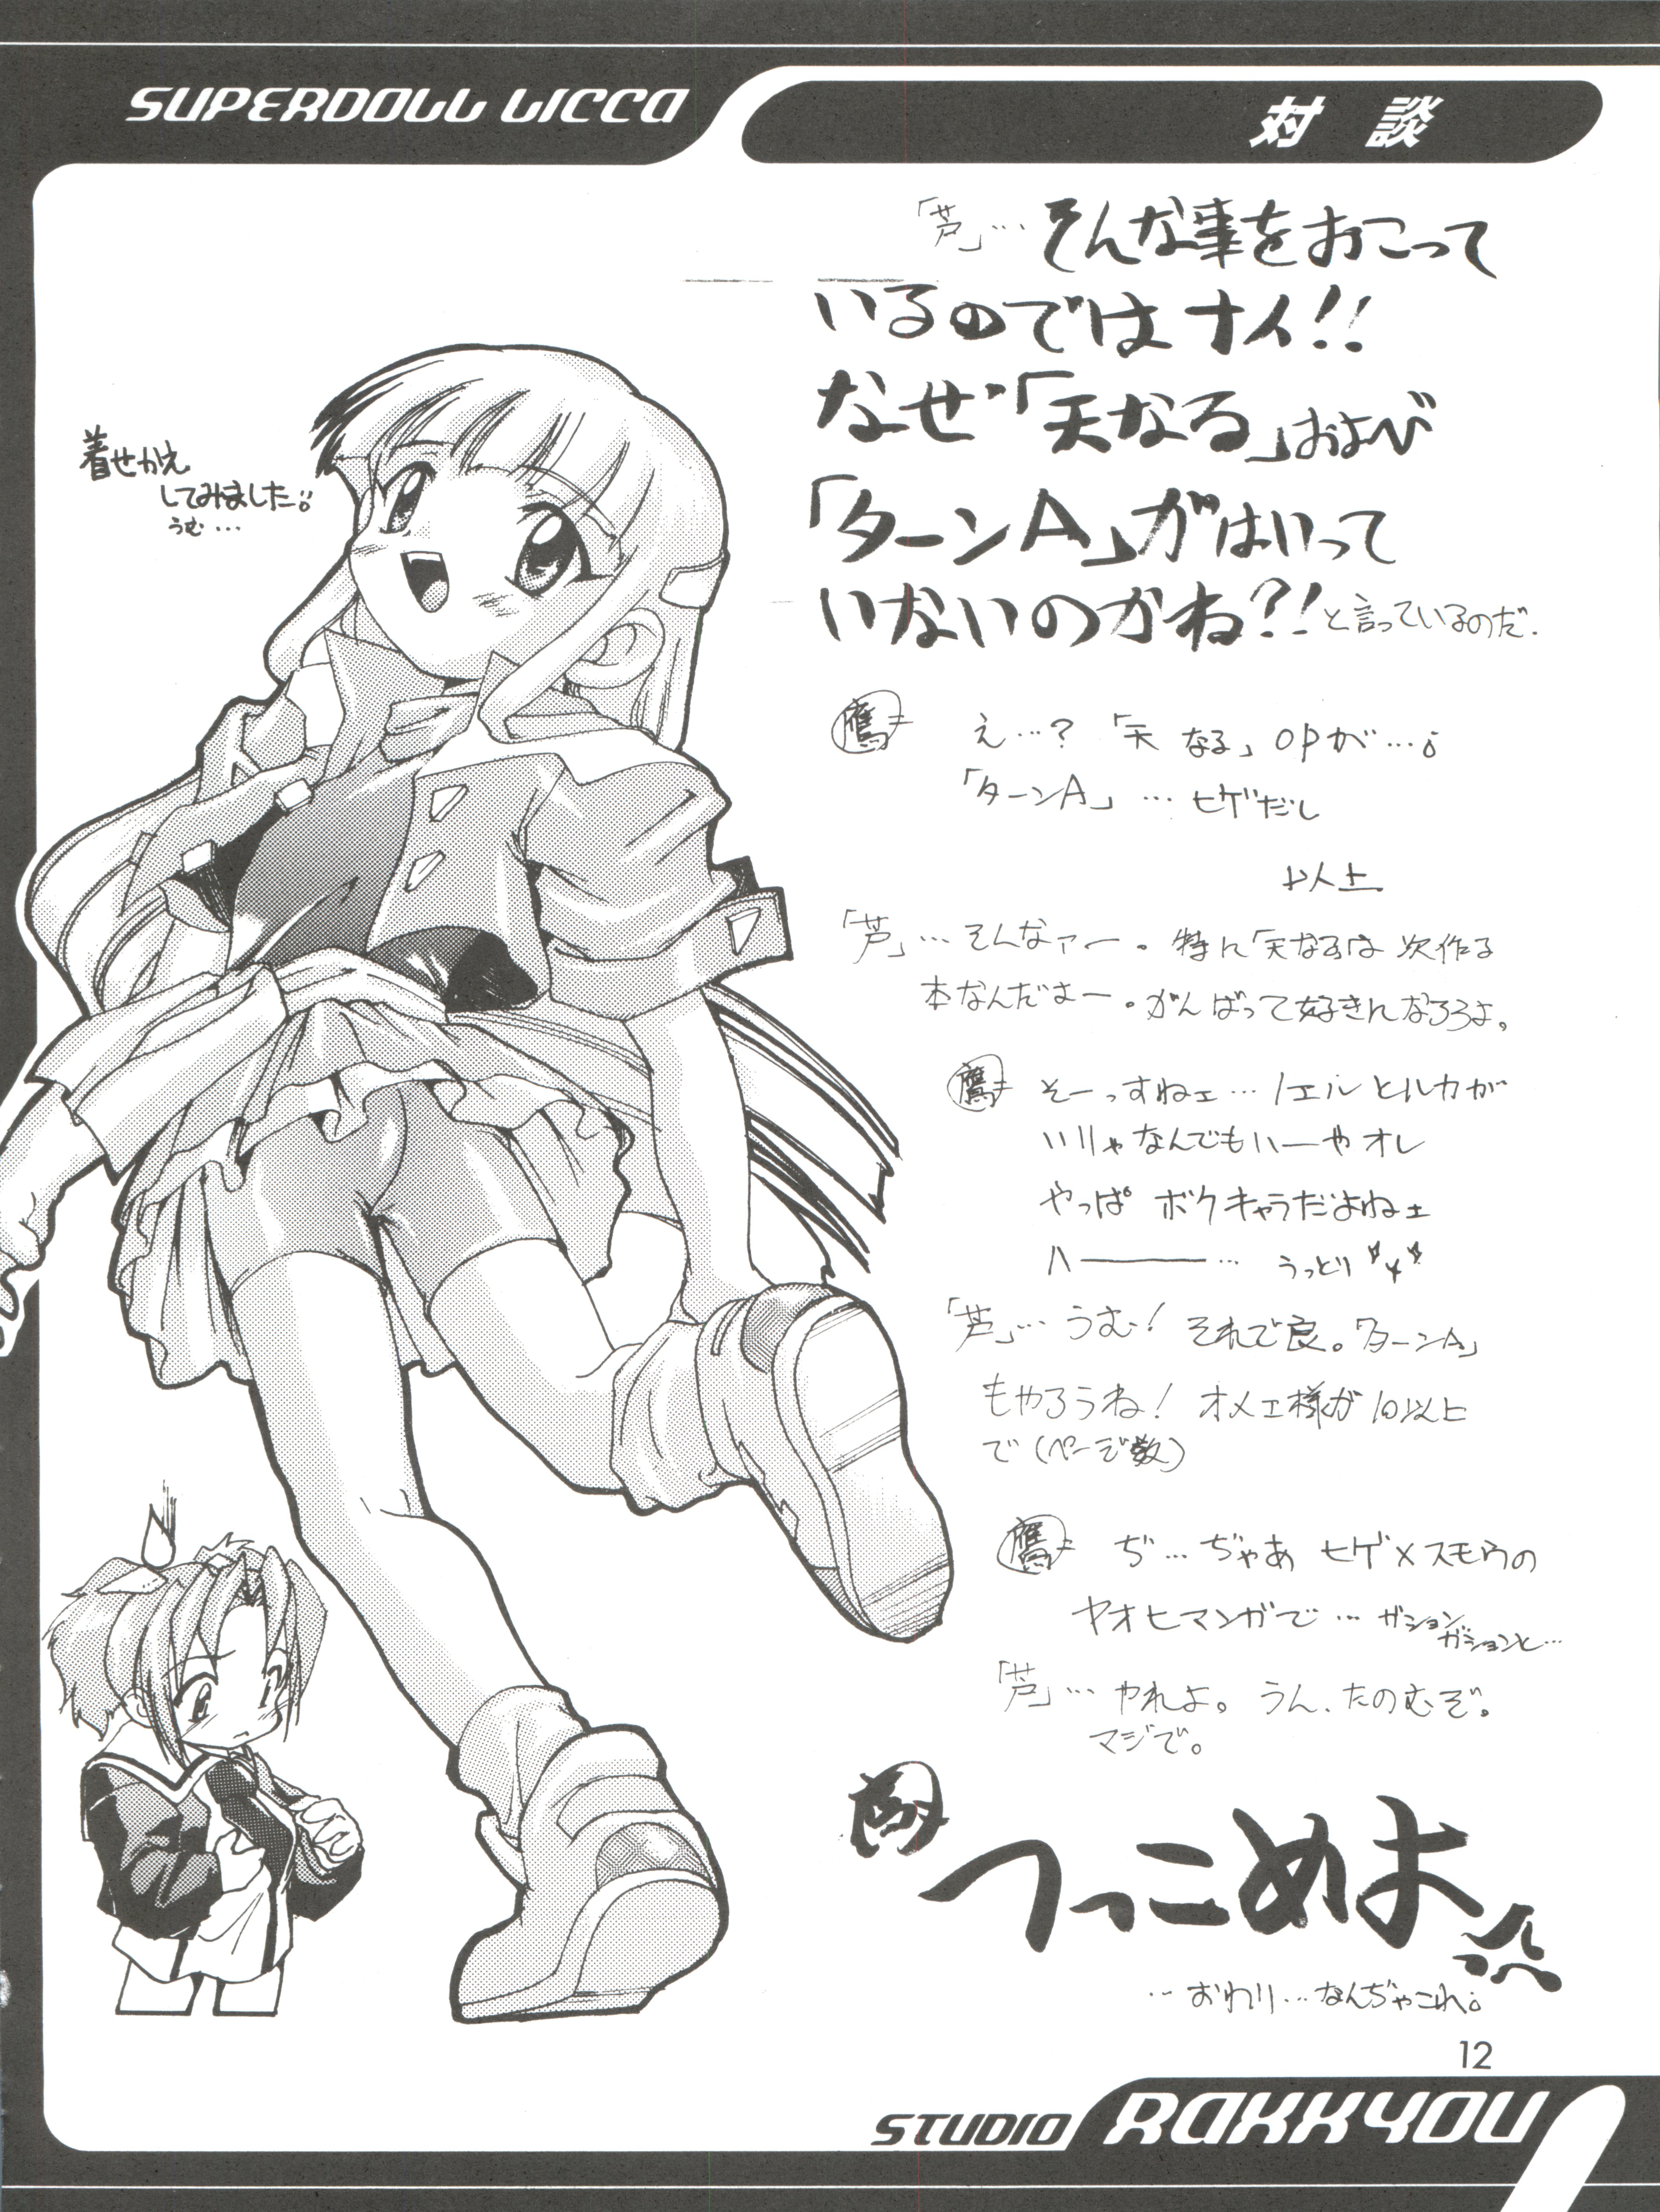 SUPERDOLL LICCA
対談
「芦」… そんな事をおこって
いるのではナイ!!
なぜ「天なる」および
「ターンA」がはいって
いないのかね?! と言っているのだ.
着せかえ
してみました。
うむ…
鷹= え…? 「天なる」OPが…。
「ターンA」… ヒゲだし
以上
「芦」… そんなァー。特に「天なる」は次作る
本なんだよー。がんばって好きになろうよ。
鷹= そーっすねェ… ノエルとルカが
いりゃなんでもいーやオレ
やっぱ ボクキャラだよねェ
ハ――… うっとり
「芦」… うむ! それで良。「ターンA」
もやろうね! オメェ様が10以上
で(ページ数)
鷹= ぢ…ぢゃあ ヒゲ×スモウの
ヤオヒマンガで… ガション
ガションと…
「芦」… やれよ。うん、たのむぞ。
マジで。
つっこめよ
… おわり… なんぢゃこれ。
12
STUDIO RAKKYOU